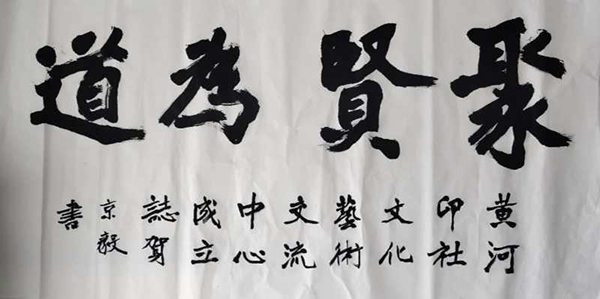 聚賢為道
黄河
印社
文化
藝術
交流
中心
成立
誌賀
京毅
書